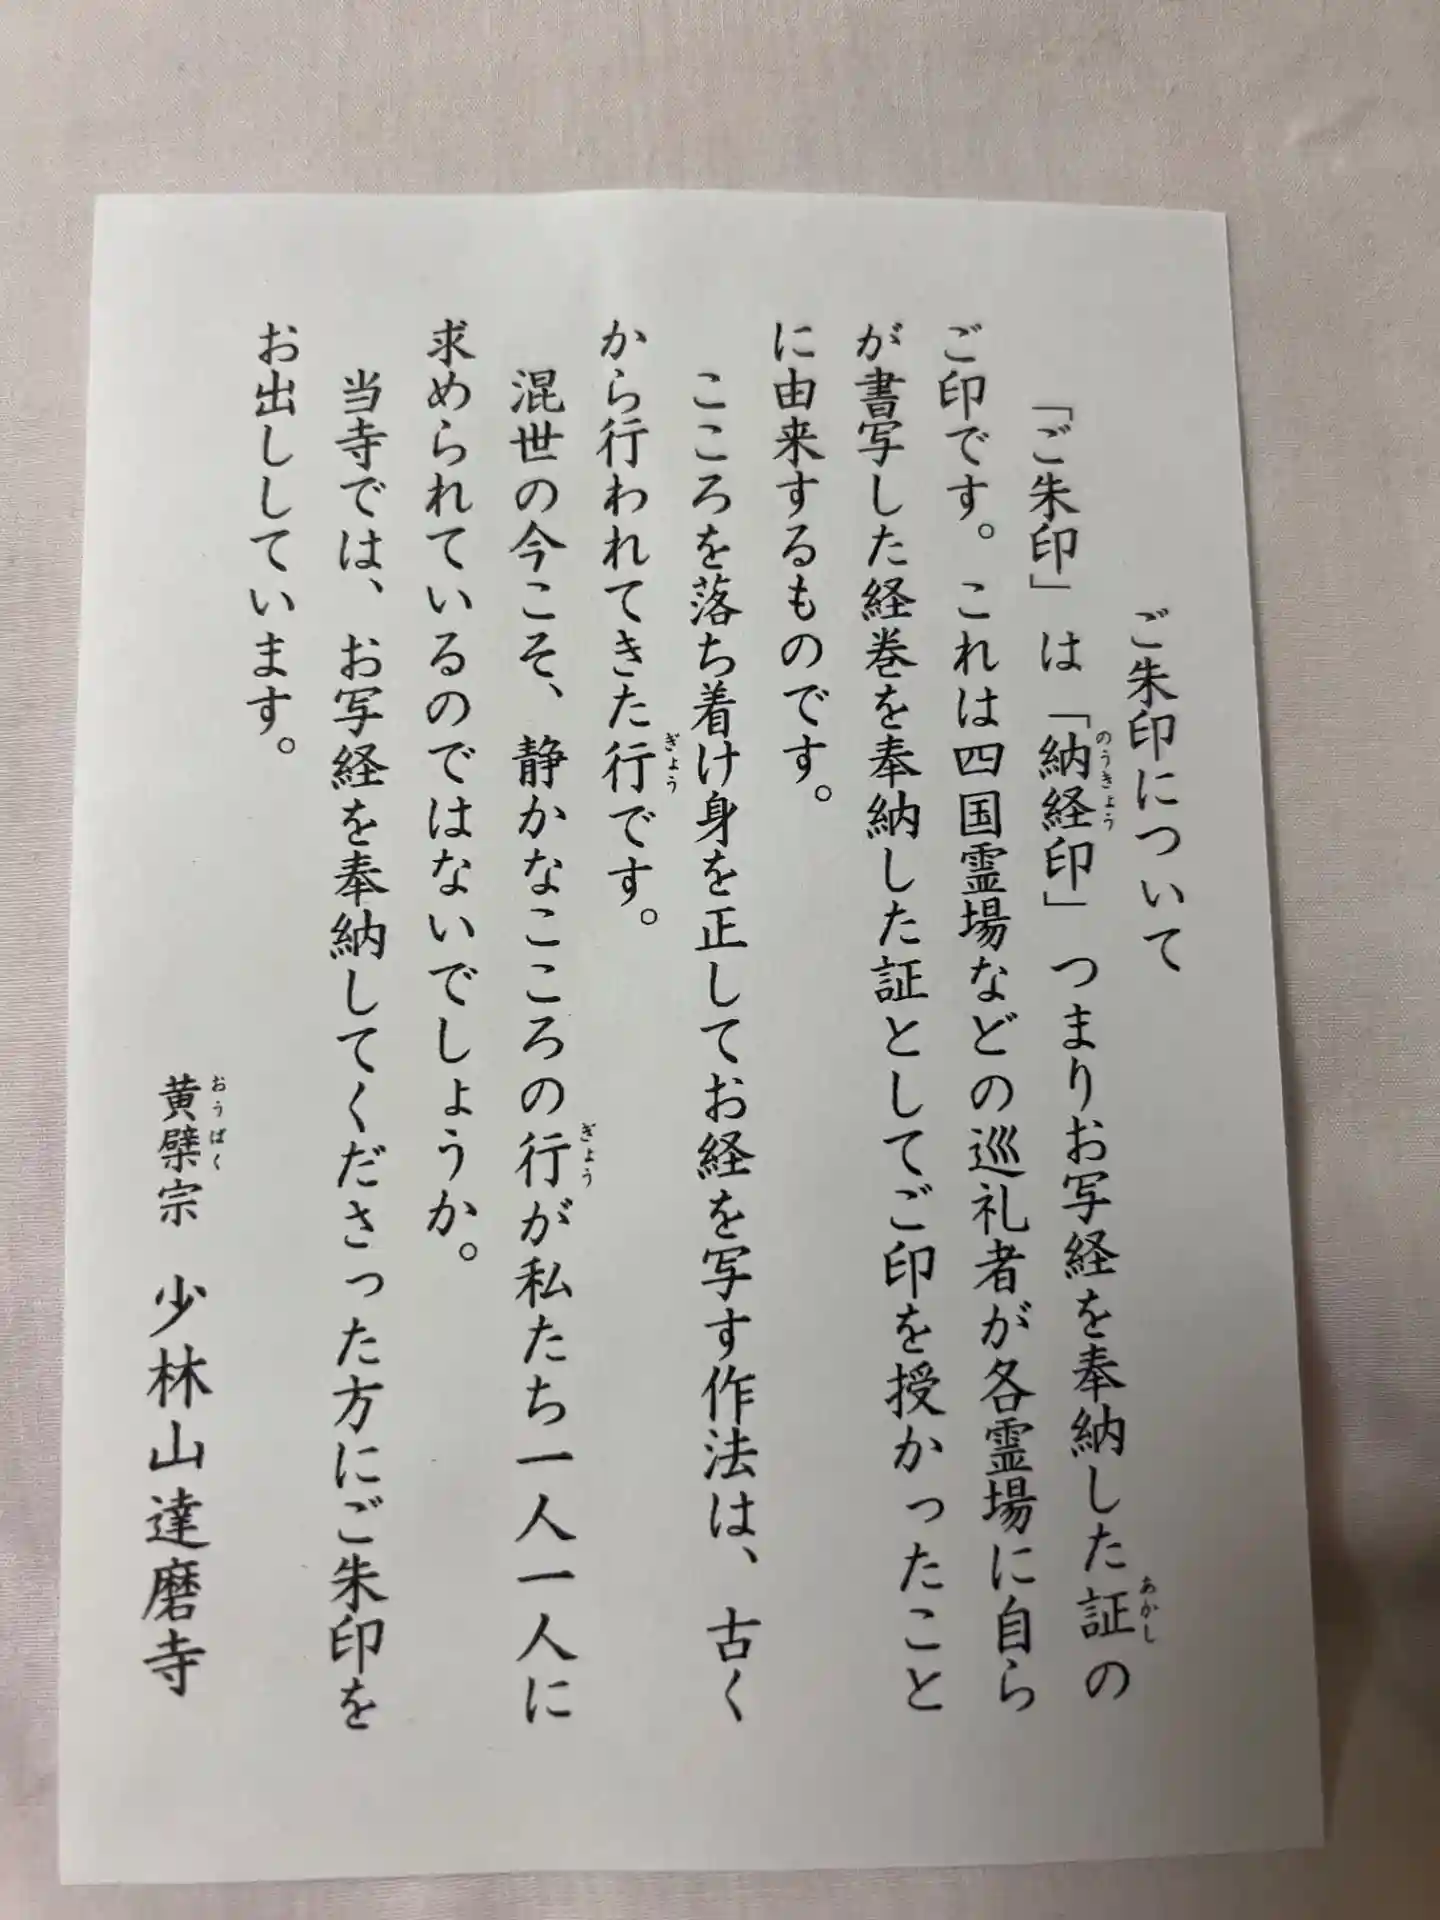 ご朱印について
「ご朱印」は「納経印」つまりお写経を奉納した証の
のうきょう
あかし
ご印です。これは四国霊場などの巡礼者が各霊場に自ら
が書写した経巻を奉納した証としてご印を授かったこと
に由来するものです。
こころを落ち着け身を正してお経を写す作法は、古く
から行われてきた行です。
ぎょう
混世の今こそ、静かなこころの行が私たち一人一人に
ぎょう
求められているのではないでしょうか。
当寺では、お写経を奉納してくださった方にご朱印を
お出ししています。
黄檗宗 少林山達磨寺
おうばく